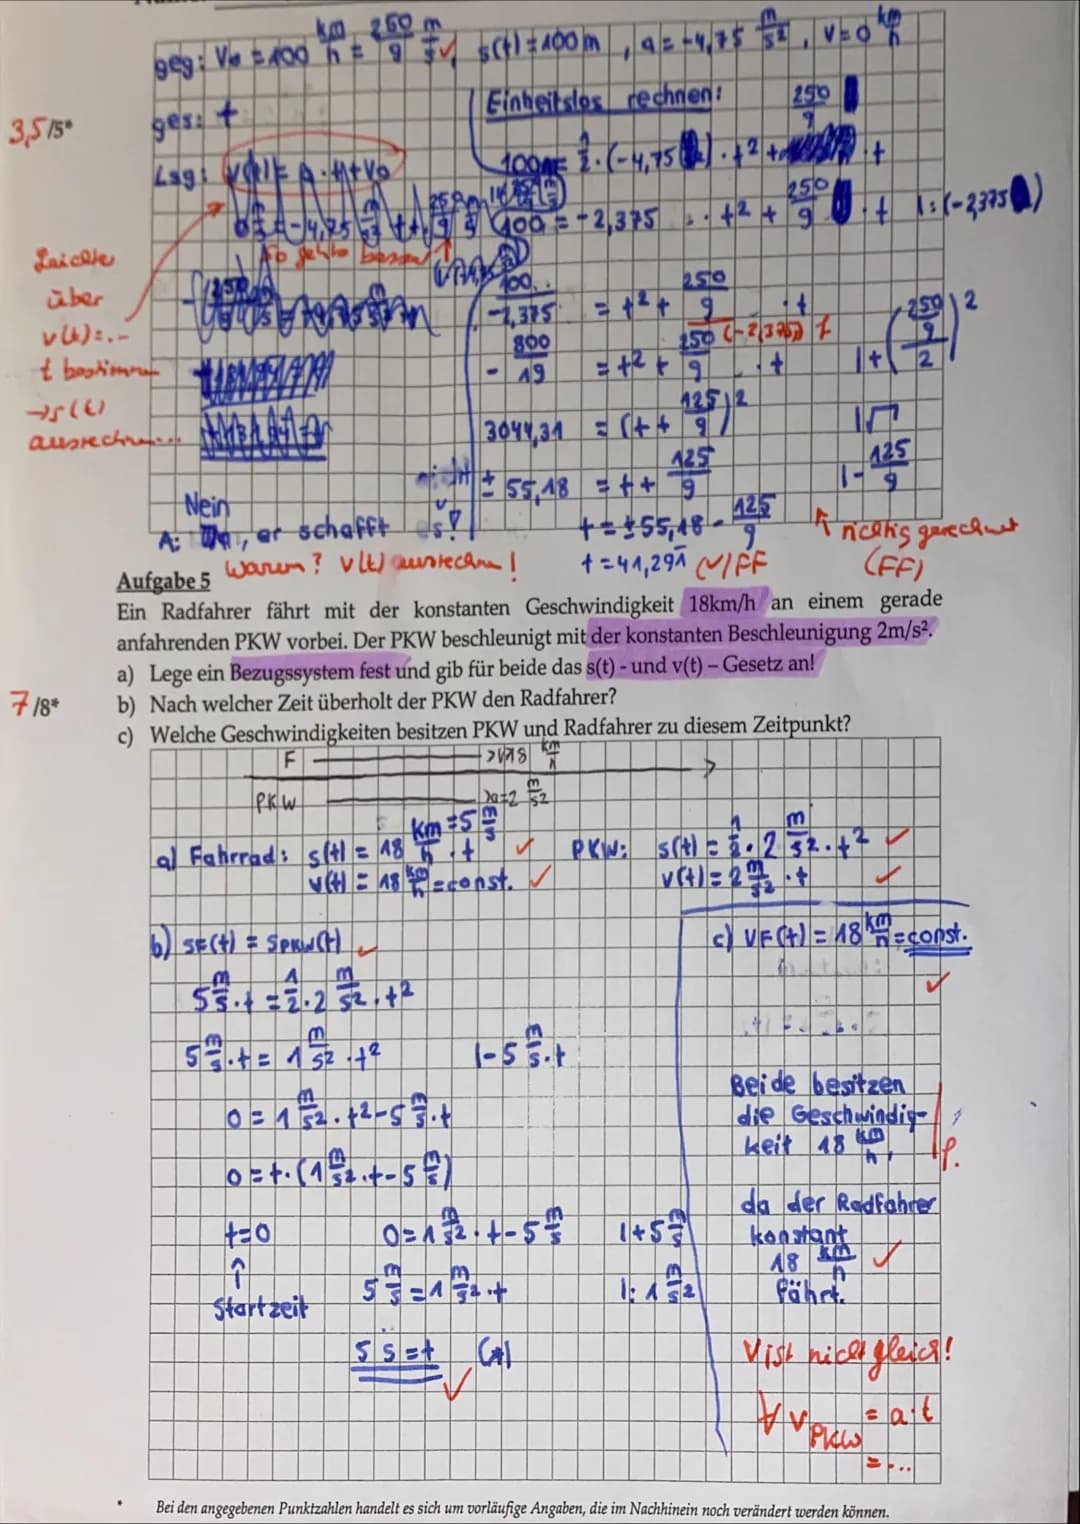 geg: V₀ = 100 km/h = 250/9 m/s ✓, s(t) = 100m, a = -4,75 m/s², v = 0 km/h
ges: t
Einheitslos rechnen:
3,5/5*
Lsg: v(t) = a · t + v₀
100 = 1/2 · (-4,75) · t² + 250/9 · t
100 = -2,375 · t² + 250/9 · t |: (-2,375)
So geht's besser!
Leichter
über
v(t)=...
t bestimmen
→ s(t)
ausrechnen...
100/-2,375 = t² + 250/9 (-2,375) · t
- 800/19 = t² + 250/9 · t | + (250/9 / 2)²
3044,31 = (t + 125/9)² | √
± 55,18 = t + 125/9 | - 125/9
t = ± 55,18 - 125/9
t = 41,291 (✓) FF
↑ richtig gerechnet
(FF)
Nein
A: er schafft es nicht!
Warum? v(t) ausrechnen!
Aufgabe 5
Ein Radfahrer fährt mit der konstanten Geschwindigkeit 18km/h an einem gerade
anfahrenden PKW vorbei. Der PKW beschleunigt mit der konstanten Beschleunigung 2m/s².
a) Lege ein Bezugssystem fest und gib für beide das s(t) - und v(t) – Gesetz an!
7/8*
b) Nach welcher Zeit überholt der PKW den Radfahrer?
c) Welche Geschwindigkeiten besitzen PKW und Radfahrer zu diesem Zeitpunkt?
F → v18 km/h
PKW → a=2 m/s²
a) Fahrrad: s(t) = 18 km/h = 5 m/s · t ✓
v(t) = 18 km/h = const. ✓
PKW: s(t) = 1/2 · 2 m/s² · t² ✓
v(t) = 2 m/s² · t ✓
b) SF(t) = SPKW(t) ✓
5 m/s · t = 1/2 · 2 m/s² · t²
5 m/s · t = 1 m/s² · t² | - 5 m/s · t
0 = 1 m/s² · t² - 5 m/s · t
0 = t · (1 m/s² · t - 5 m/s)
t=0
↑
Startzeit
0 = 1 m/s² · t - 5 m/s | + 5 m/s
5 m/s = 1 m/s² · t |: 1 m/s²
5 s = t ✓
c) VF(t) = 18 km/h = const. ✓
Beide besitzen
die Geschwindig-
keit 18 km/h,
f.
da der Radfahrer
konstant
18 km/h ✓
fährt.
V ist nicht gleich!
V PKW = a · t
= ...
* Bei den angegebenen Punktzahlen handelt es sich um vorläufige Angaben, die im Nachhinein noch verändert werden können.